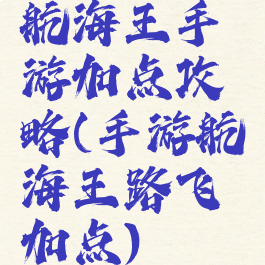 航海王手
游加点攻
略(手游航
海王路飞
加点)